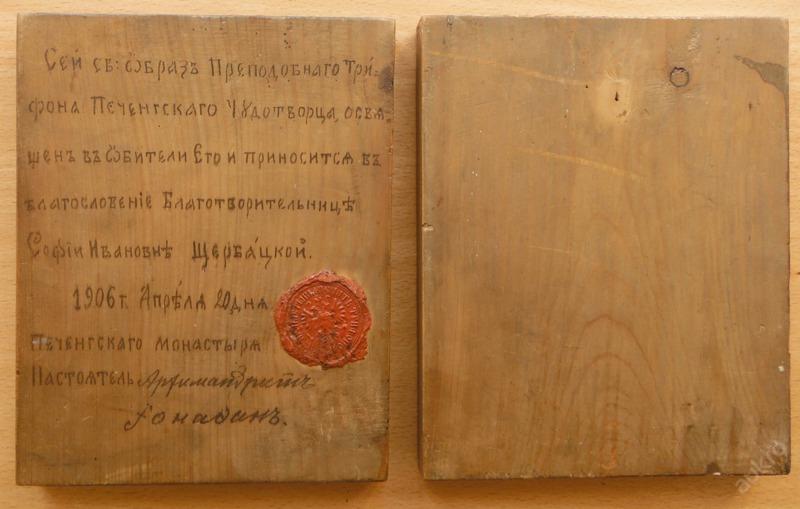 Сей св: ѡбразъ Преподобнаго Три-
фона Печенгскаго Чудотворца, освѧ-
щенъ въ ѡбители Его и приноситсѧ въ
благословенiе Благотворительницѣ
Софiи Ивановнѣ Щербáцкой.
1906 г. Апрéлѧ 20 днѧ
Печенгскаго монастырѧ
Настоѧтель Архимандритъ
Іонаѳанъ.